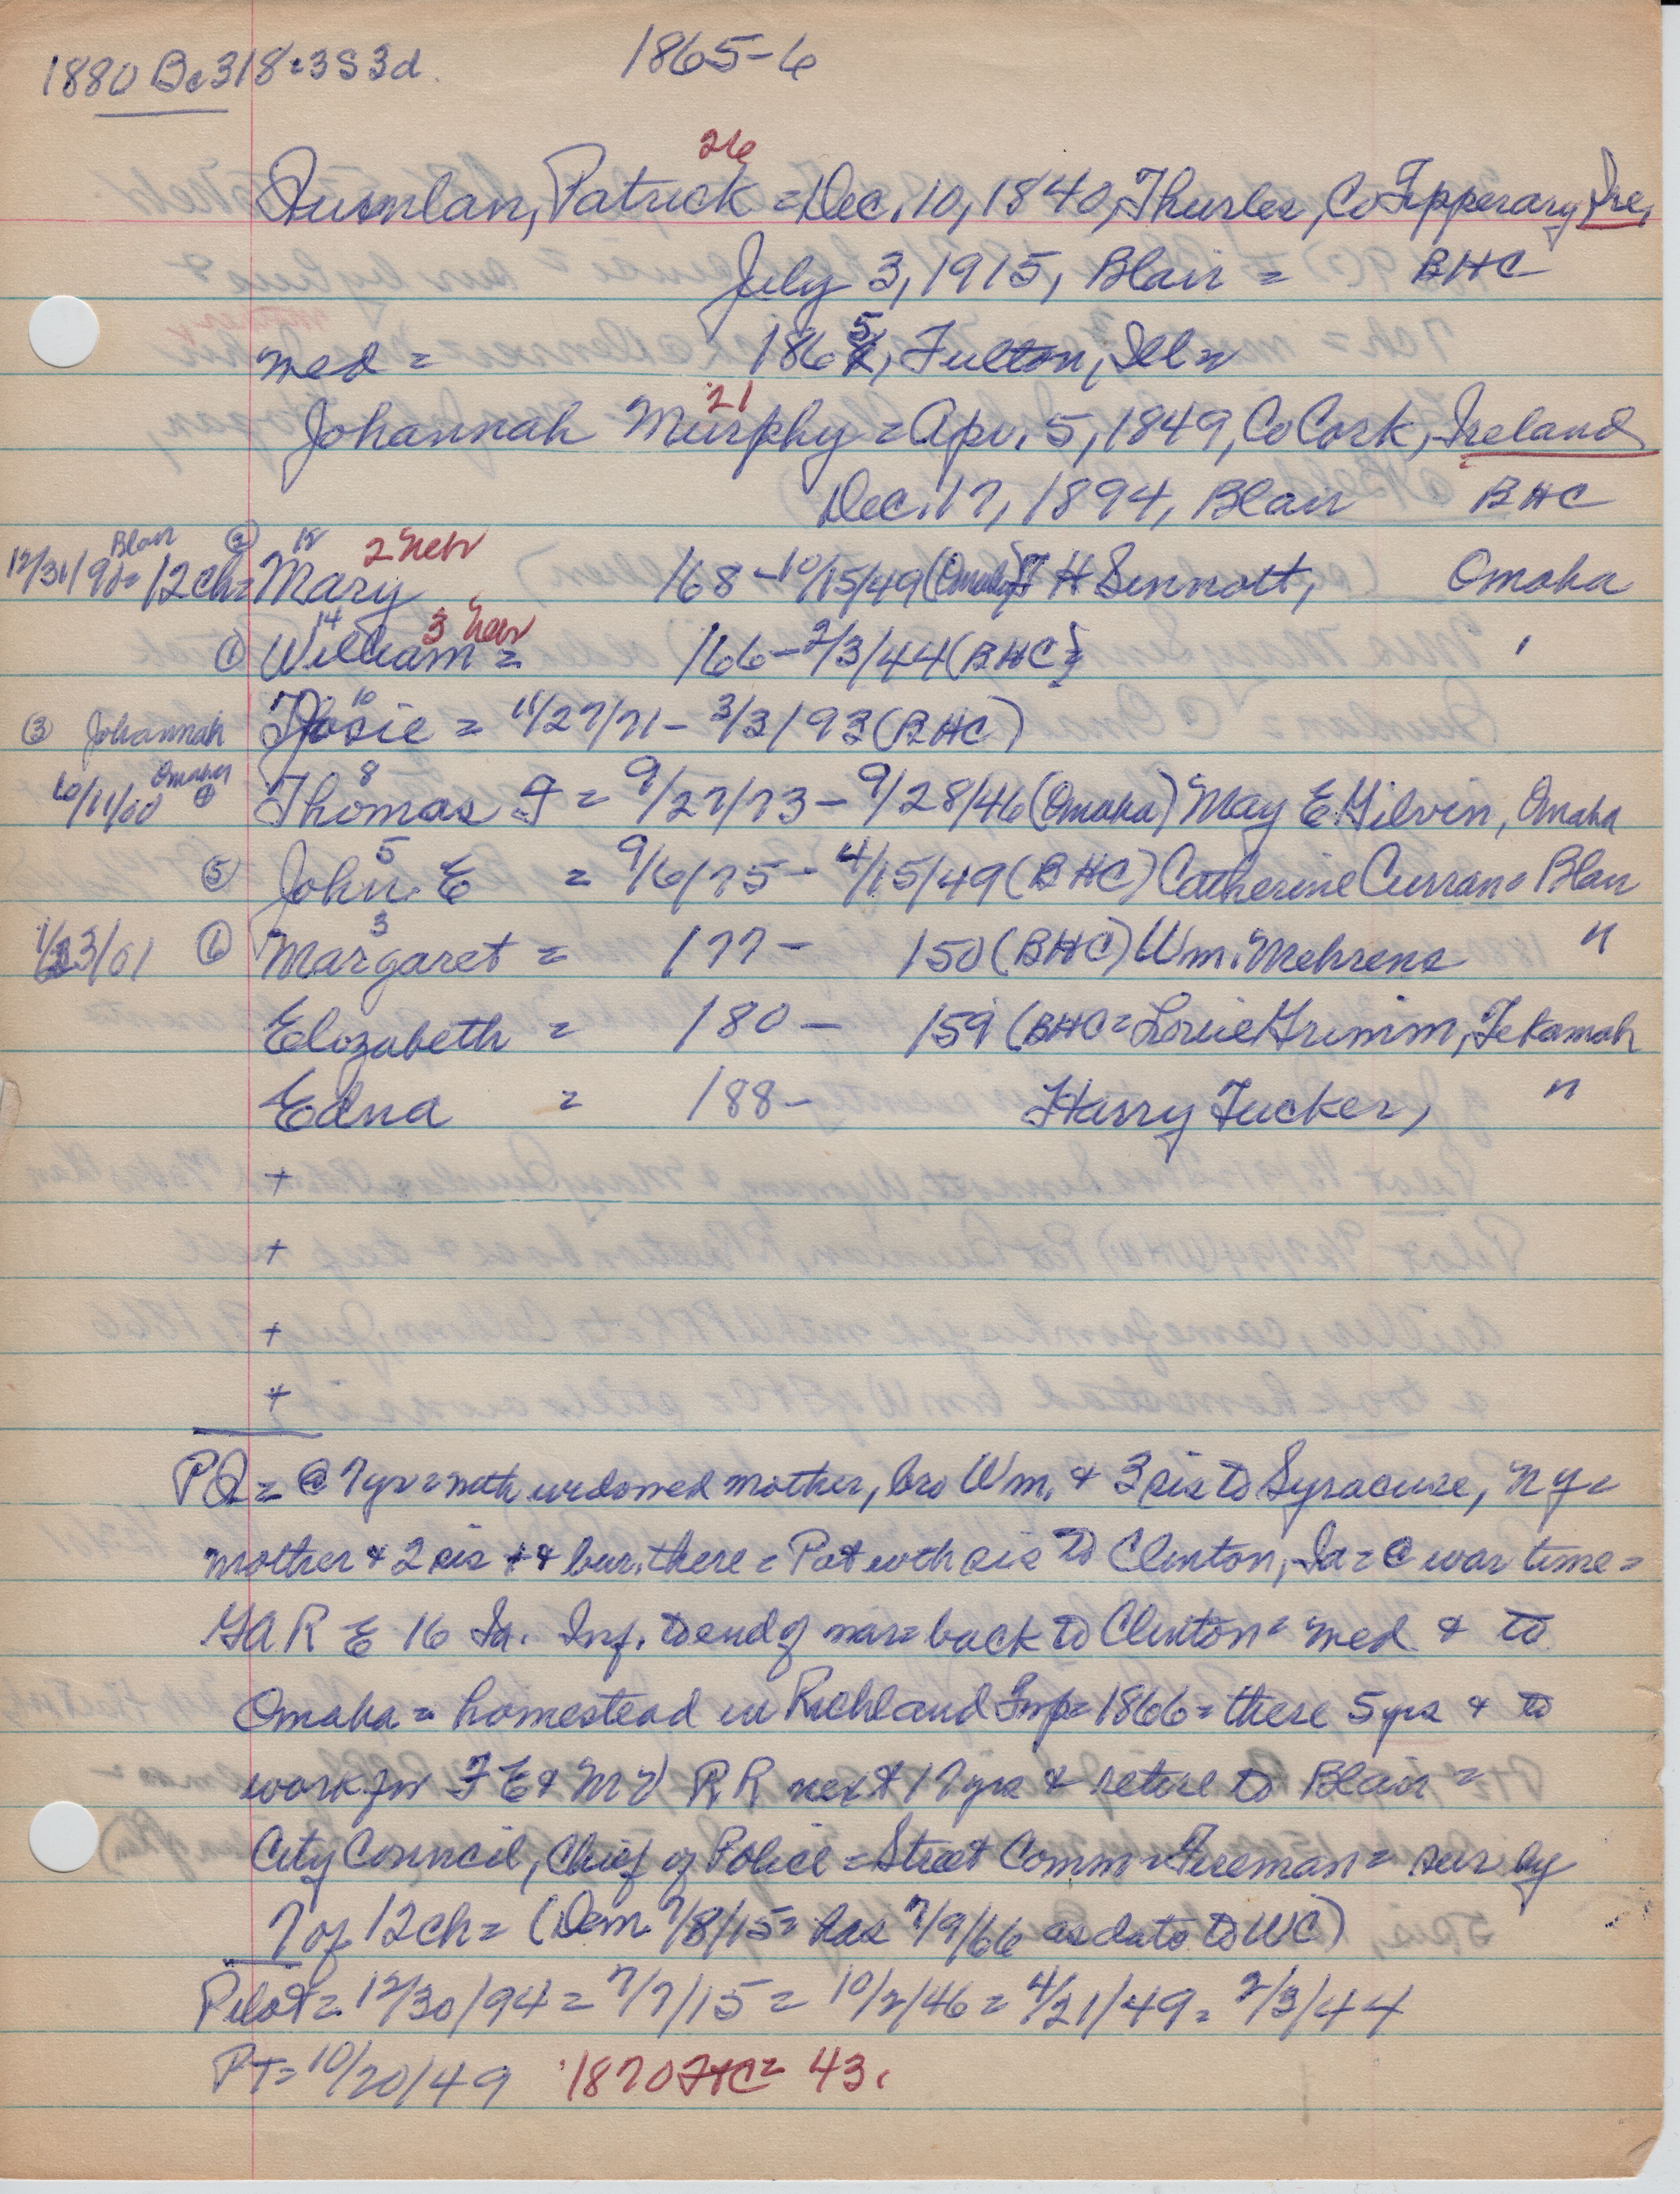 1865-6
1880 Bc 318=3S 3d.
26
Quinlan, Patrick = Dec. 10, 1840, Thurles, Co Tipperary, Ire,
July 3, 1915, Blair = BHC
med = 1865, Fulton, Ill =
21
Johannah Murphy = Apr. 5, 1849, Co Cork, Ireland
Dec. 17, 1894, Blair BHC
Blair ② 18 2 Nebr
12ch = Mary 168 - 10/15/49 (Omaha) T H Sinnott, Omaha
14 3 Nebr
① William = 166 - 2/3/44 (BHC) "
10
③ Johannah Josie = 11/27/71 - 3/3/93 (BHC)
Omaha 8
10/11/00 ④ Thomas F = 9/27/73 - 9/28/46 (Omaha) May E Gilvin, Omaha
5
⑤ John E = 9/6/75 - 4/15/49 (BHC) Catherine Curran = Blair
3
1/23/01 ⑥ Margaret = 177 - 150 (BHC) Wm. Mehrens "
Elizabeth = 180 - 159 (BHC = Louie Grimm, Tekamah
Edna = 188 - Harry Tucker, "
+
+
+
+
PQ = @ 7yr = with widowed mother, bro Wm. & 3 sis to Syracuse, NY =
mother & 2 sis + & bur. there = Pat with sis to Clinton, Ia = @ war time =
GAR E 16 Ia. Inf. to end of war = back to Clinton = med & to
Omaha = homestead in Richland Twp = 1866 = there 5 yrs & to
work for F E & M V RR next 17 yrs & retire to Blair =
City Council, Chief of Police = Street Comm = Fireman = sur by
7 of 12 ch = (Dem 7/8/15 = has 7/9/66 as date to WC)
Pilot = 12/30/94 = 7/7/15 = 10/2/46 = 4/21/49 = 2/3/44
PT = 10/20/49 1870 FtC = 43.